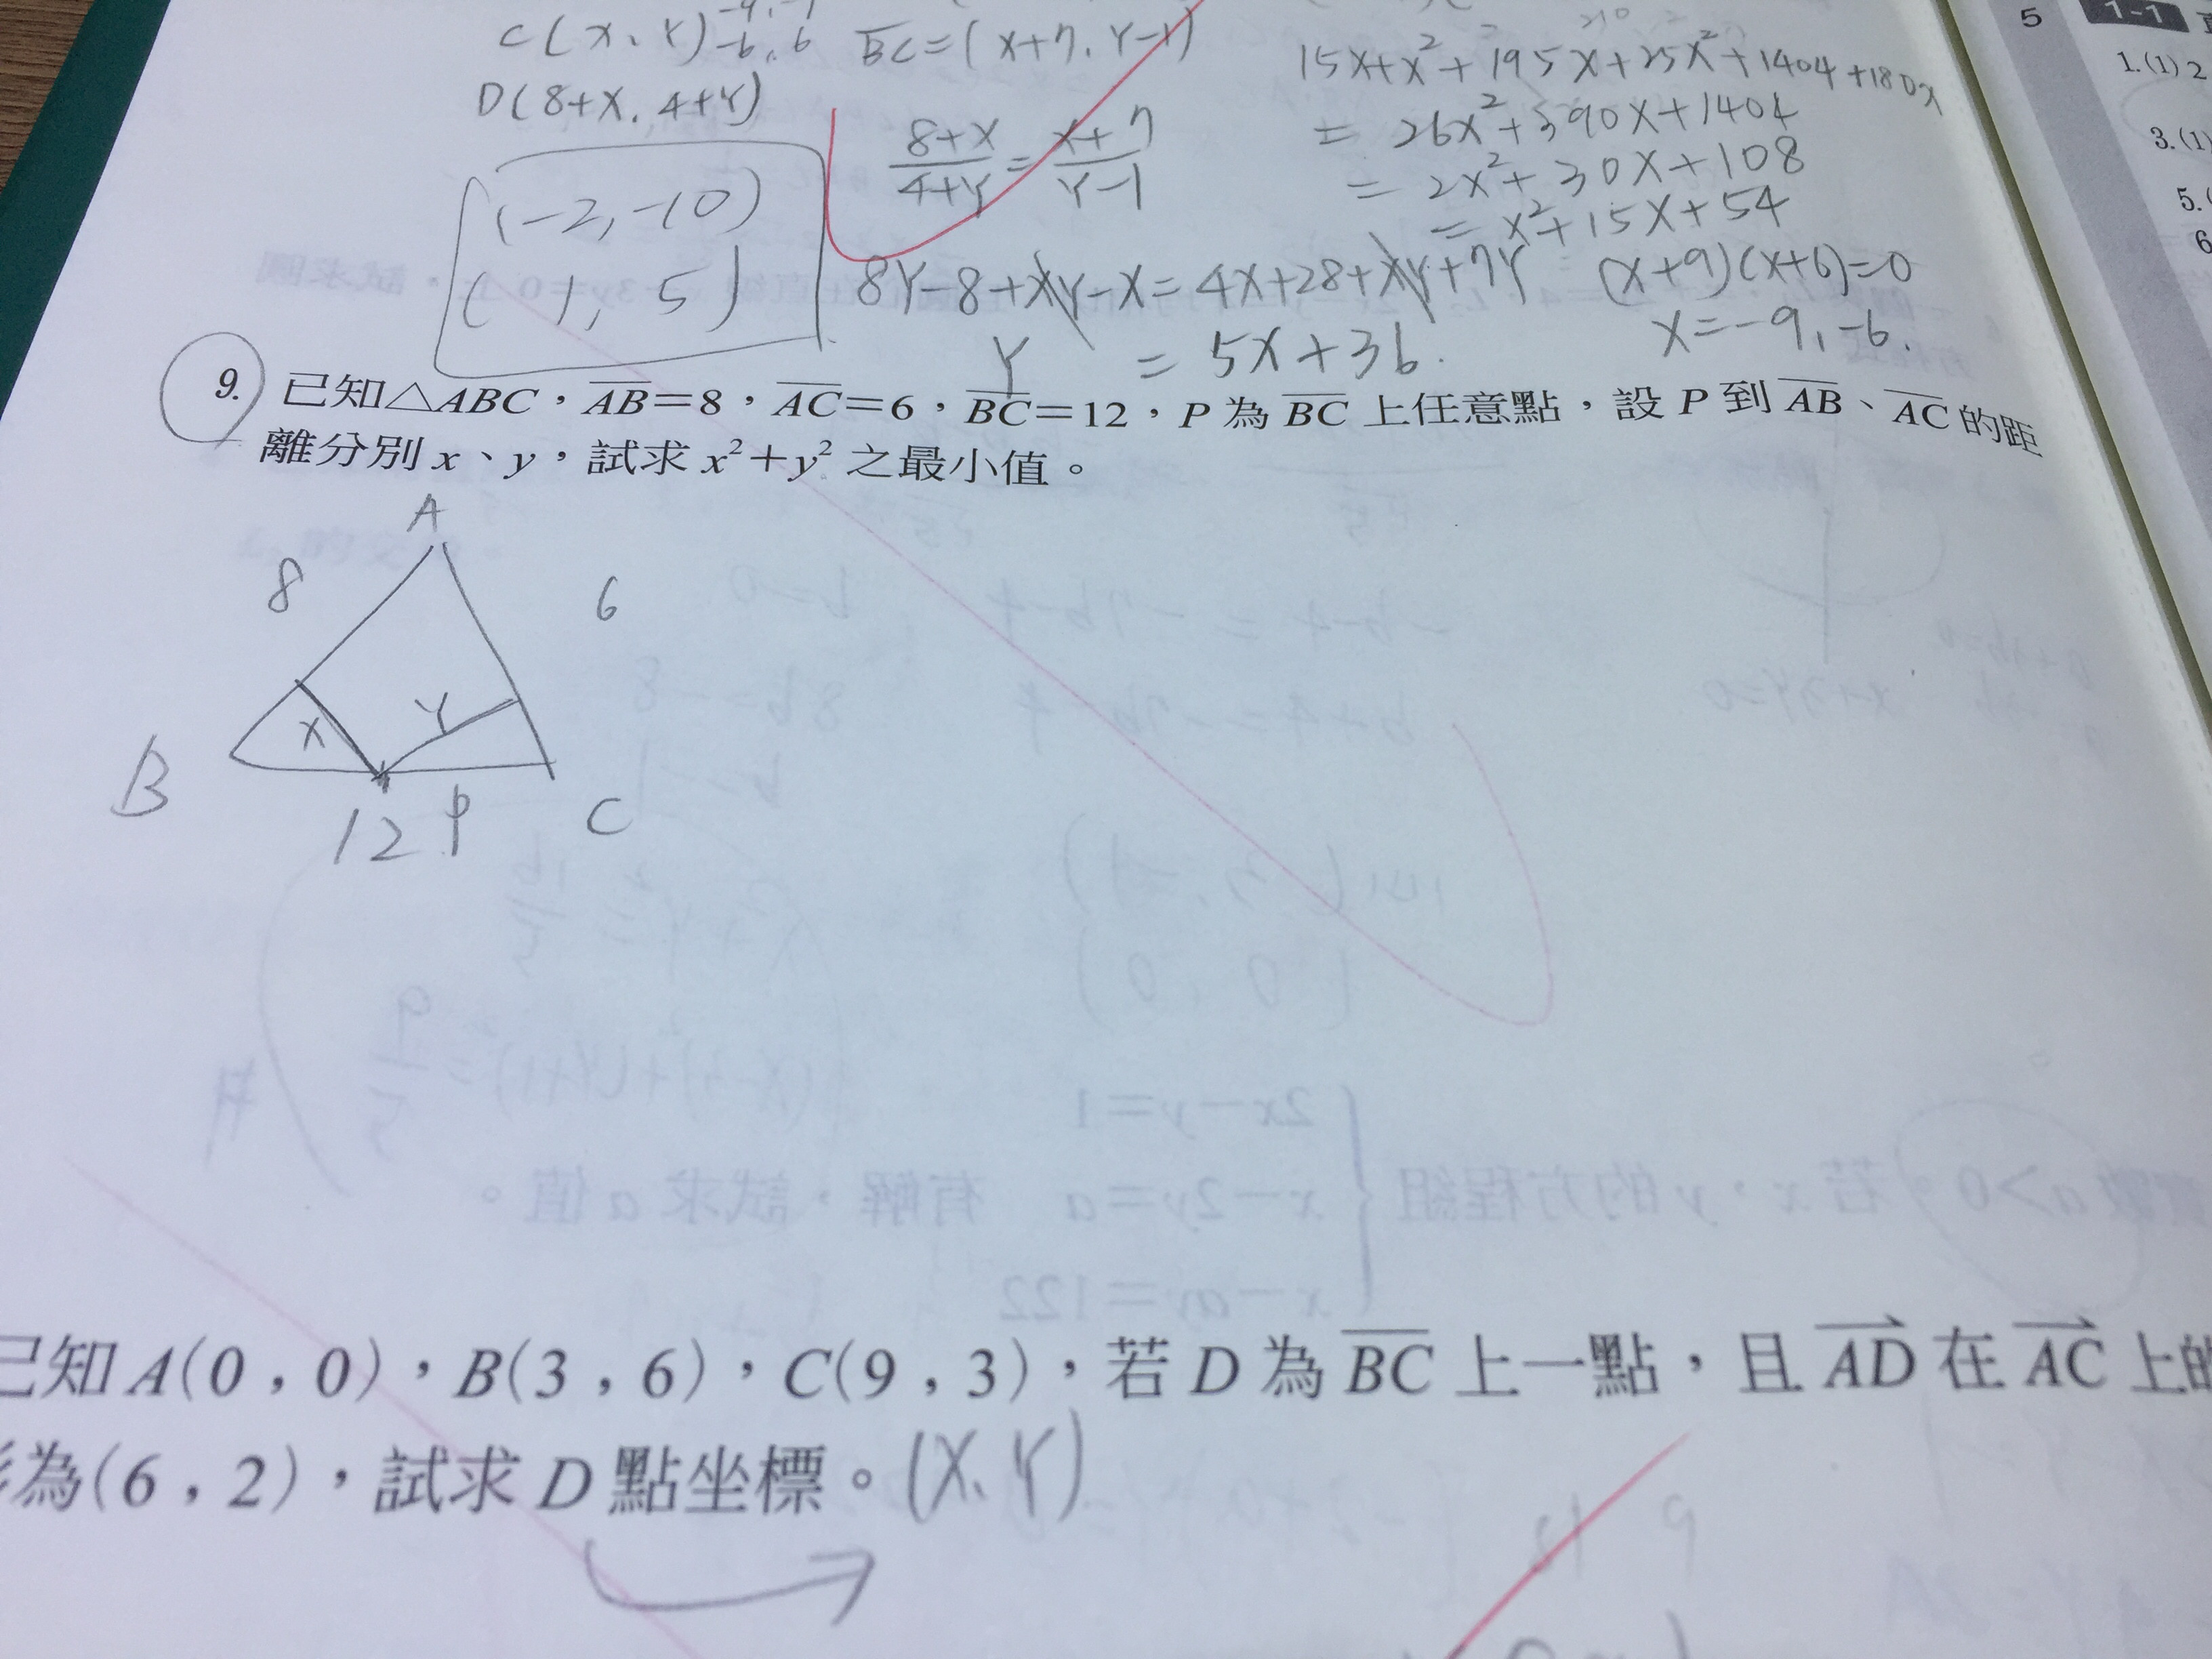 C(x,Y) -6,6
D(8+X, 4+Y)
(-2,-10)
(1,5)
BC=(X+7,Y-1)
8+X/4+Y=X+7/Y-1
8Y-8+XY-X=4X+28+XY+7Y
Y=5X+36.
15X+X²+195X+25X²+1404+180X
=26X²+390X+1404
=2X²+30X+108
=X²+15X+54
(X+9)(X+6)=0
X=-9,-6.
5 1-1
1.(1) 2
3.(1)
5.(
6
9. 已知△ABC,AB=8,AC=6,BC=12,P為BC上任意點,設P到AB、AC的距
離分別x、y,試求x²+y²之最小值。
A
8 6
X Y
B C
12 P
已知A(0,0),B(3,6),C(9,3),若D為BC上一點,且AD在AC上的
影為(6,2),試求D點坐標。(X,Y)